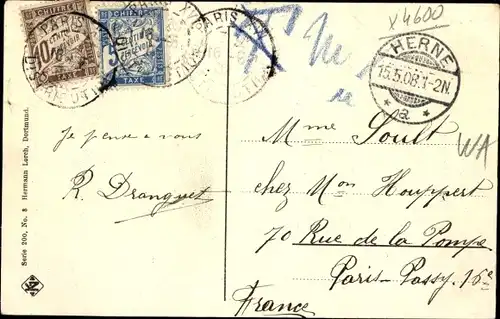 x 4600
PARIS
CHIFFRE
CHIFFRE
10
5
À PERCEVOIR
TAXE
TAXE
PARIS
T
HERNE
15.5.08. 1-2N
* a *
WA
Je pense a vous
R. Dranguet
Mme Soult
chez Mon Houppert
70 Rue de la Pompe
Paris-Passy. 16e
France
Serie 200, No. 8 Hermann Lorch, Dortmund.